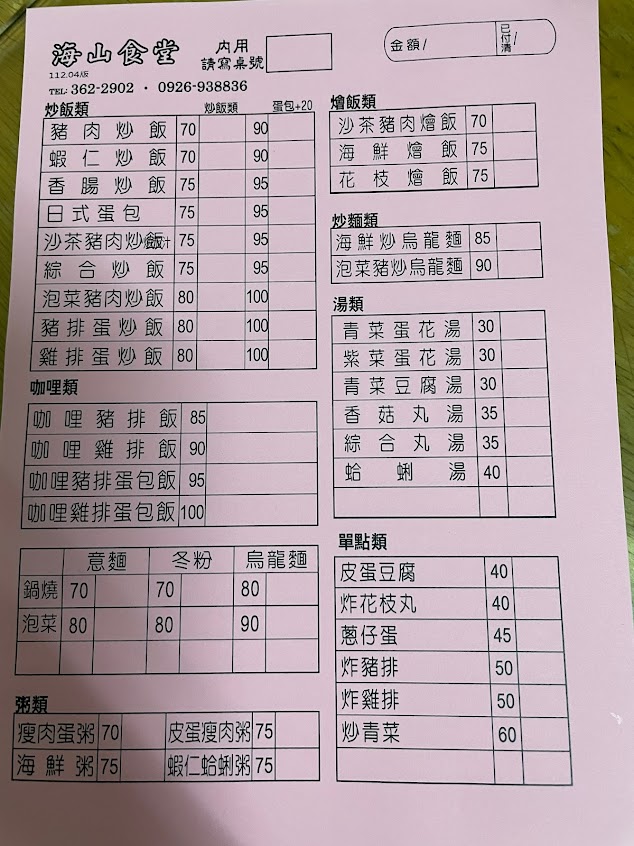 海山食堂
112.04版
TEL: 362-2902 · 0926-938836
內用
請寫桌號
金額/
已付清/
炒飯類 炒飯類 蛋包+20
豬肉炒飯 70 90
蝦仁炒飯 70 90
香腸炒飯 75 95
日式蛋包 75 95
沙茶豬肉炒飯 75 95
綜合炒飯 75 95
泡菜豬肉炒飯 80 100
豬排蛋炒飯 80 100
雞排蛋炒飯 80 100
咖哩類
咖哩豬排飯 85
咖哩雞排飯 90
咖哩豬排蛋包飯 95
咖哩雞排蛋包飯 100
意麵 冬粉 烏龍麵
鍋燒 70 70 80
泡菜 80 80 90
粥類
瘦肉蛋粥 70 皮蛋瘦肉粥 75
海鮮粥 75 蝦仁蛤蜊粥 75
燴飯類
沙茶豬肉燴飯 70
海鮮燴飯 75
花枝燴飯 75
炒麵類
海鮮炒烏龍麵 85
泡菜豬炒烏龍麵 90
湯類
青菜蛋花湯 30
紫菜蛋花湯 30
青菜豆腐湯 30
香菇丸湯 35
綜合丸湯 35
蛤蜊湯 40
單點類
皮蛋豆腐 40
炸花枝丸 40
蔥仔蛋 45
炸豬排 50
炸雞排 50
炒青菜 60